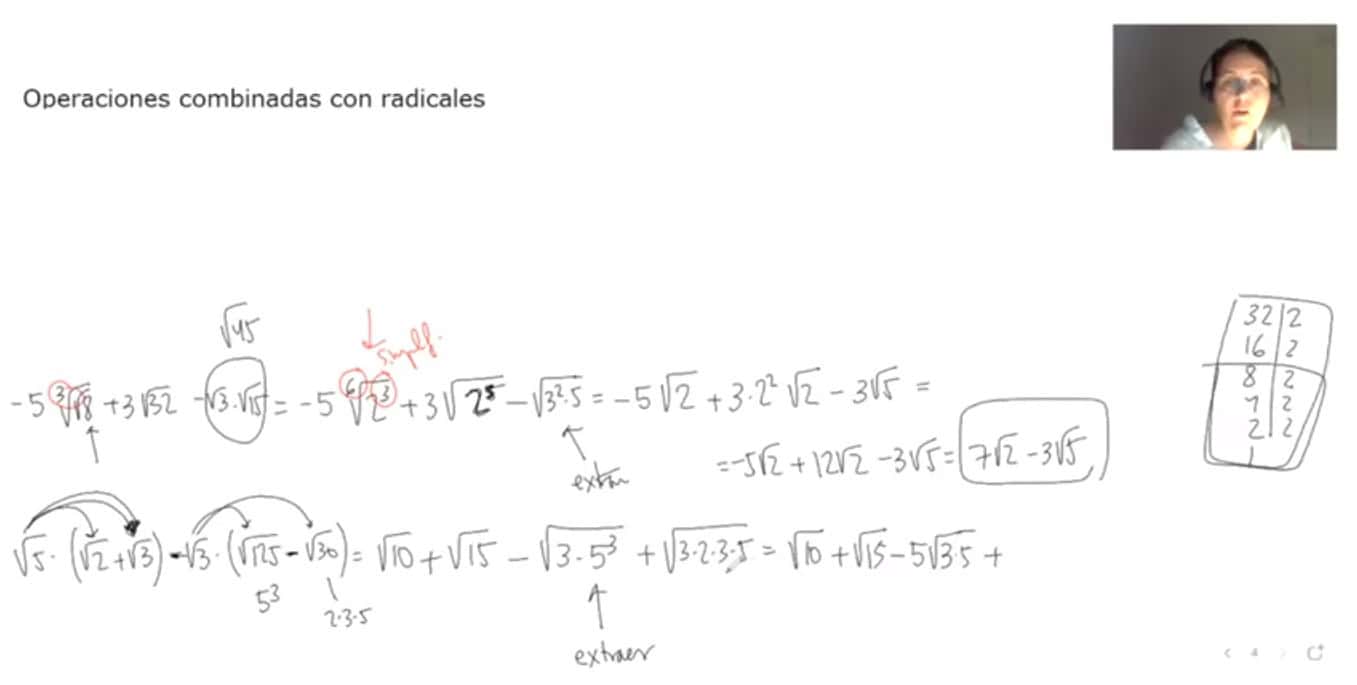 Operaciones combinadas con radicales
√45
simplf.
-5 ∛√8 + 3√32 - √3·√15 = -5 ⁶√2³ + 3√2⁵ - √3²·5 = -5√2 + 3·2²√2 - 3√5 =
= -5√2 + 12√2 - 3√5 = 7√2 - 3√5
32 | 2
16 | 2
8 | 2
4 | 2
2 | 2
1
√5·(√2+√3) - √3·(√125 - √30) = √10 + √15 - √3·5³ + √3·2·3·5 = √10 + √15 - 5√3·5 +
5³
2·3·5
extraer
4